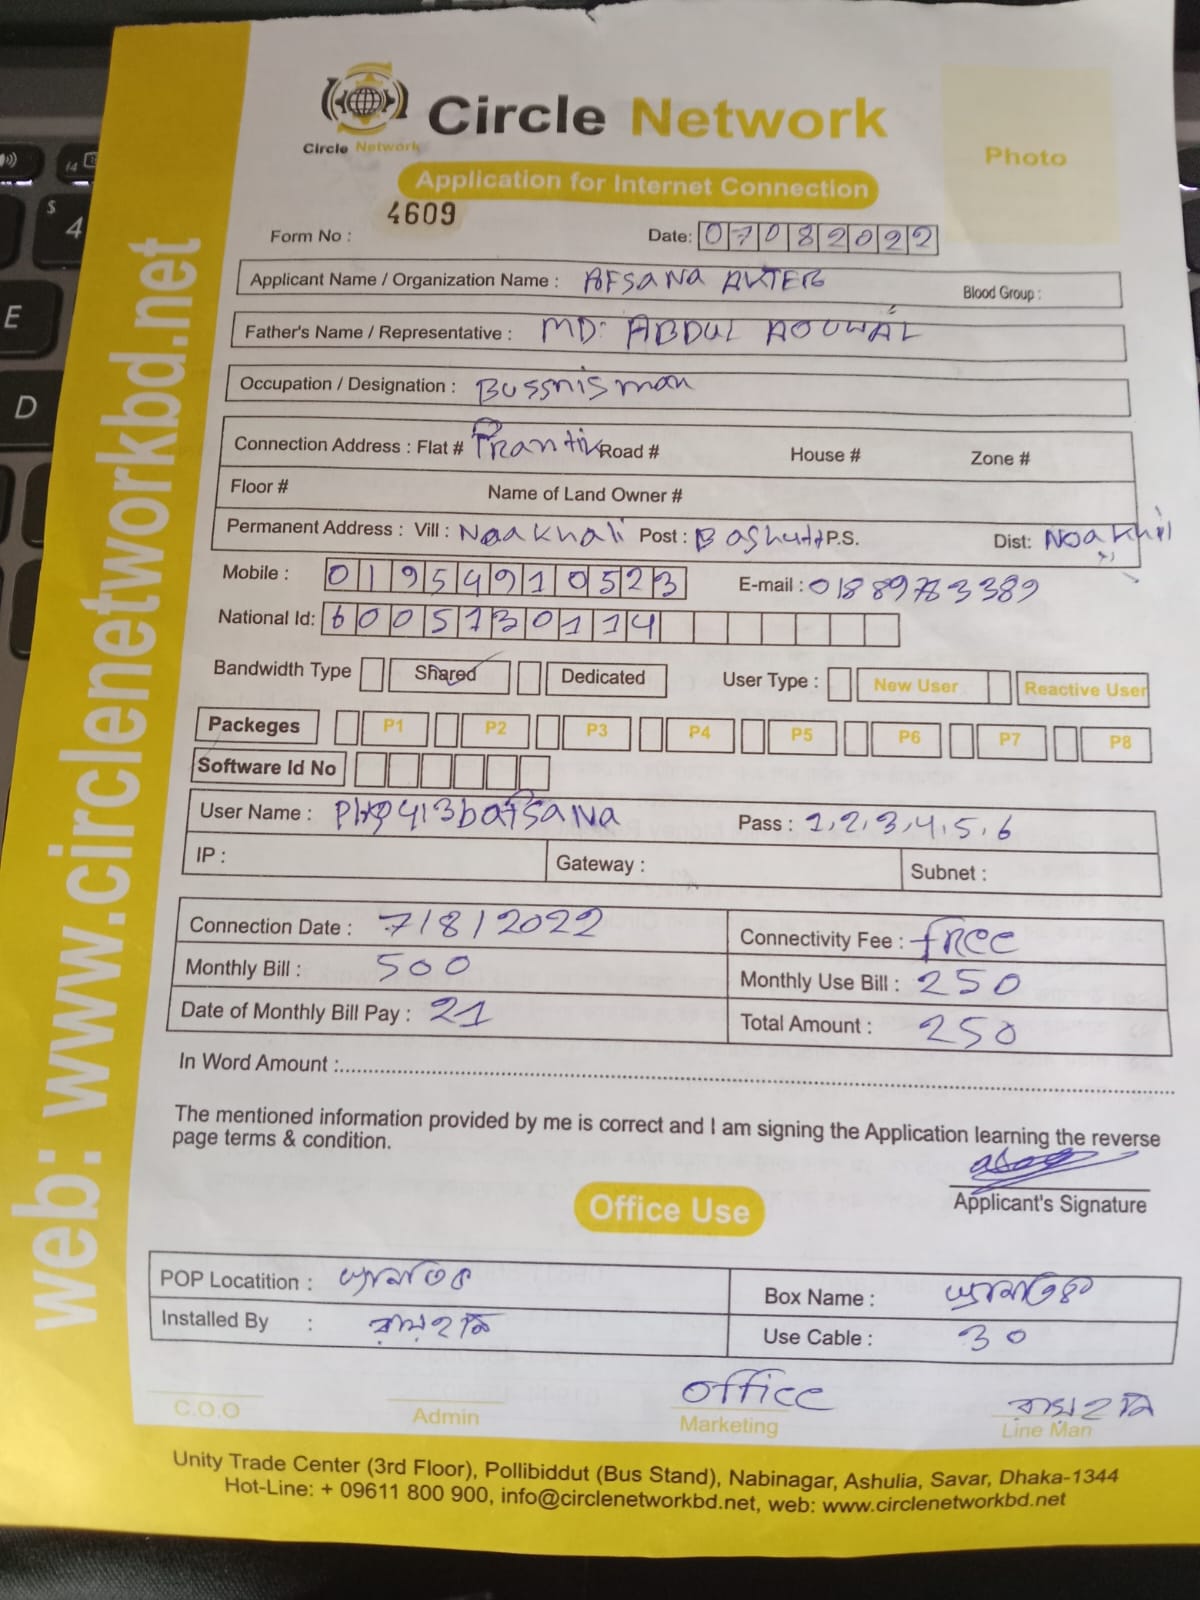 web: www.circlenetworkbd.net
Circle Network
Circle Network
Photo
Application for Internet Connection
Form No : 4609 Date: 07082022
Applicant Name / Organization Name : AFSANA AKTER Blood Group :
Father's Name / Representative : MD: ABDUL AOUWAL
Occupation / Designation : Bussnisman
Connection Address : Flat # Prantik Road # House # Zone #
Floor # Name of Land Owner #
Permanent Address : Vill : Noakhali Post : P.S. Dist: Noakhli
Mobile : 01954910523 E-mail : 01889783389
National Id: 6005730114
Bandwidth Type Shared Dedicated User Type : New User Reactive User
Packeges P1 P2 P3 P4 P5 P6 P7 P8
Software Id No
User Name : Pass : 1,2,3,4,5,6
IP : Gateway : Subnet :
Connection Date : 7/8/2022 Connectivity Fee : free
Monthly Bill : 500 Monthly Use Bill : 250
Date of Monthly Bill Pay : 21 Total Amount : 250
In Word Amount :
The mentioned information provided by me is correct and I am signing the Application learning the reverse
page terms & condition.
Applicant's Signature
Office Use
POP Locatition : Box Name :
Installed By : Use Cable : 30
C.O.O Admin office Marketing Line Man
Unity Trade Center (3rd Floor), Pollibiddut (Bus Stand), Nabinagar, Ashulia, Savar, Dhaka-1344
Hot-Line: + 09611 800 900, info@circlenetworkbd.net, web: www.circlenetworkbd.net